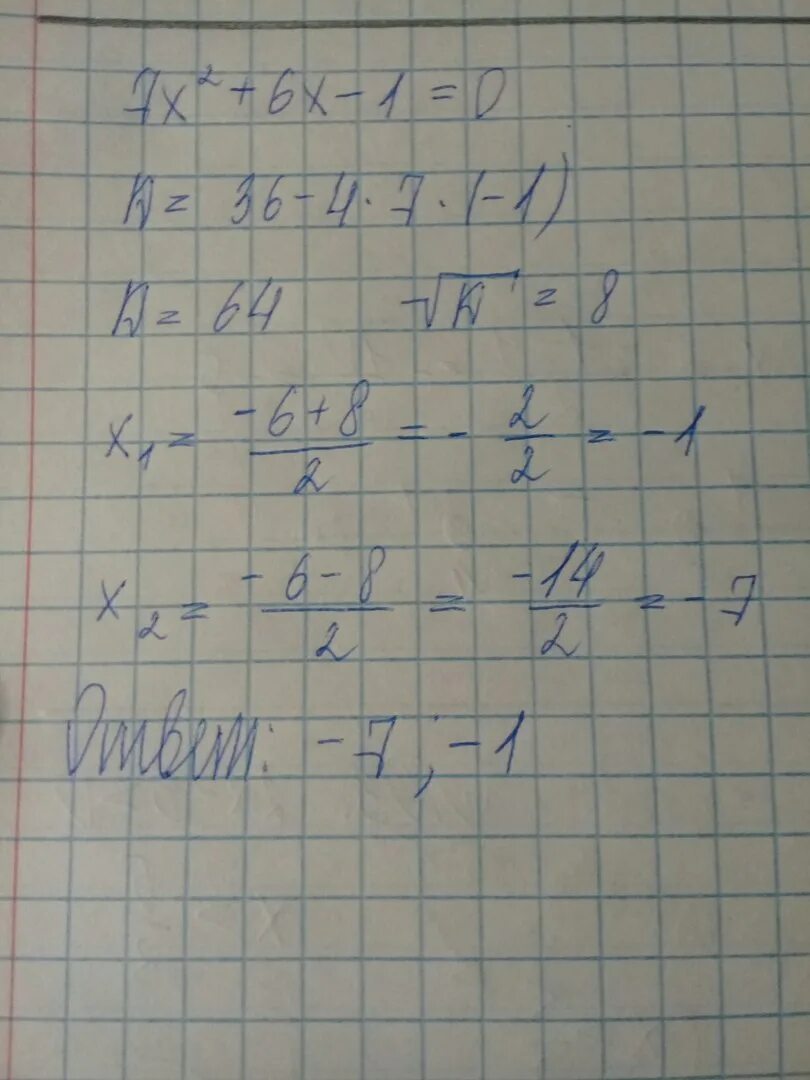 7x² + 6x - 1 = 0
D = 36 - 4 · 7 · (-1)
D = 64 √D = 8
x₁ = (-6+8)/2 = - 2/2 = -1
x₂ = (-6-8)/2 = -14/2 = -7
Ответ: -7 ; -1